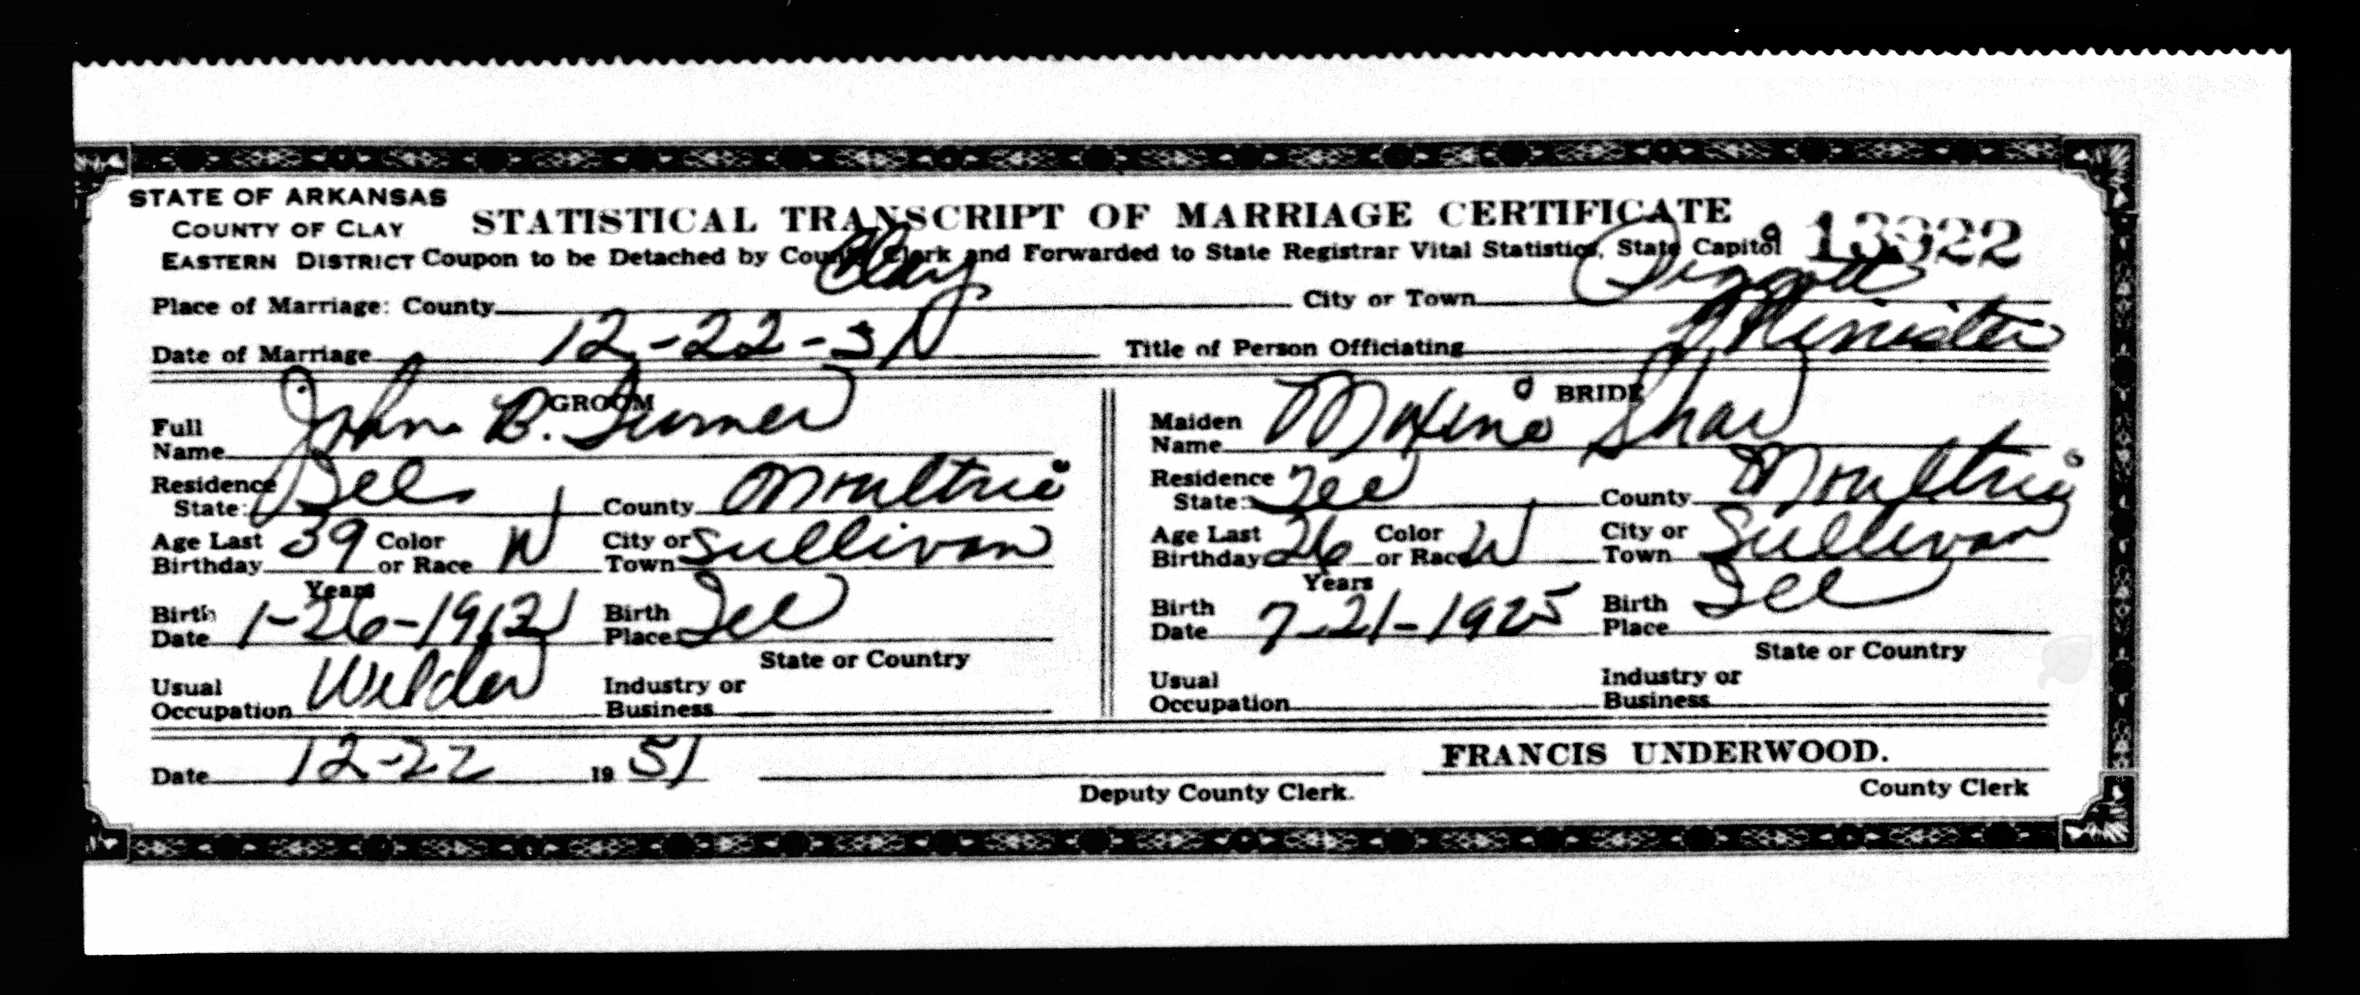 STATE OF ARKANSAS
COUNTY OF CLAY
EASTERN DISTRICT
STATISTICAL TRANSCRIPT OF MARRIAGE CERTIFICATE
Coupon to be Detached by County Clerk and Forwarded to State Registrar Vital Statistics, State Capitol
13922
Place of Marriage: County Clay City or Town Piggott
Date of Marriage 12-22-51 Title of Person Officiating Minister
GROOM BRIDE
Full Name John B. Turner Maiden Name Maxine Shaw
Residence State: Ill County Moultrie Residence State: Ill County Moultrie
Age Last Birthday 39 Years Color or Race W City or Town Sullivan Age Last Birthday 26 Years Color or Race W City or Town Sullivan
Birth Date 1-26-1912 Birth Place Ill State or Country Birth Date 7-21-1925 Birth Place Ill State or Country
Usual Occupation Welder Industry or Business Usual Occupation Industry or Business
Date 12-22 1951 Deputy County Clerk. FRANCIS UNDERWOOD. County Clerk